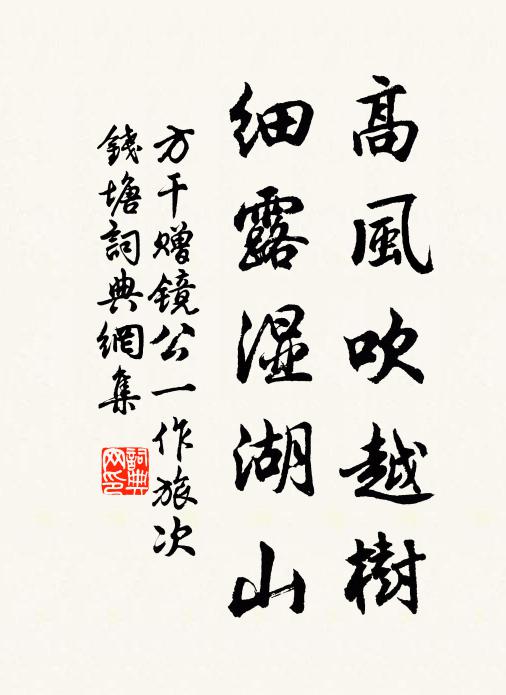 高風吹越樹
細露湿湖山
方干赠鏡公一作旅次
錢塘詞典網集
詞典网印